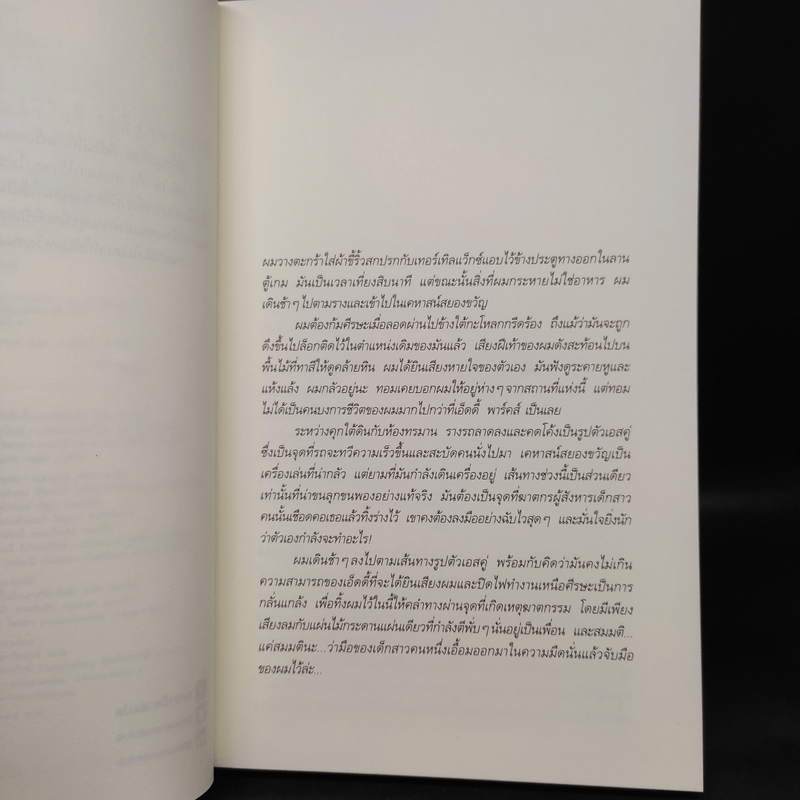 ผมวางตะกร้าใส่ผ้าขี้ริ้วสกปรกกับเทอร์เทิลแว็กซ์แอบไว้ข้างประตูทางออกในลาน
ตู้เกม มันเป็นเวลาเที่ยงสิบนาที แต่ขณะนั้นสิ่งที่ผมกระหายไม่ใช่อาหาร ผม
เดินช้าๆ ไปตามรางและเข้าไปในเคหาสน์สยองขวัญ
ผมต้องก้มศีรษะเมื่อลอดผ่านไปข้างใต้กะโหลกกรีดร้อง ถึงแม้ว่ามันจะถูก
ดึงขึ้นไปล็อกติดไว้ในตำแหน่งเดิมของมันแล้ว เสียงฝีเท้าของผมดังสะท้อนไปบน
พื้นไม้ที่ทาสีให้ดูคล้ายหิน ผมได้ยินเสียงหายใจของตัวเอง มันฟังดูระคายหูและ
แห้งแล้ง ผมกลัวอยู่นะ ทอมเคยบอกผมให้อยู่ห่างๆ จากสถานที่แห่งนี้ แต่ทอม
ไม่ได้เป็นคนบงการชีวิตของผมมากไปกว่าที่เอ็ดดี้ พาร์คส์ เป็นเลย
ระหว่างคุกใต้ดินกับห้องทรมาน รางรถลาดลงและคดโค้งเป็นรูปตัวเอสคู่
ซึ่งเป็นจุดที่รถจะทวีความเร็วขึ้นและสะบัดคนนั่งไปมา เคหาสน์สยองขวัญเป็น
เครื่องเล่นที่น่ากลัว แต่ยามที่มันกำลังเดินเครื่องอยู่ เส้นทางช่วงนี้เป็นส่วนเดียว
เท่านั้นที่น่าขนลุกขนพองอย่างแท้จริง มันต้องเป็นจุดที่ฆาตกรผู้สังหารเด็กสาว
คนนั้นเชือดคอเธอแล้วทิ้งร่างไว้ เขาคงต้องลงมืออย่างฉับไวสุดๆ และมั่นใจยิ่งนัก
ว่าตัวเองกำลังจะทำอะไร!
ผมเดินช้าๆ ลงไปตามเส้นทางรูปตัวเอสคู่ พร้อมกับคิดว่ามันคงไม่เกิน
ความสามารถของเอ็ดดี้ที่จะได้ยินเสียงผมและปิดไฟทำงานเหนือศีรษะเป็นการ
กลั่นแกล้ง เพื่อทิ้งผมไว้ในนี้ให้คลำทางผ่านจุดที่เกิดเหตุฆาตกรรม โดยมีเพียง
เสียงลมกับแผ่นไม้กระดานแผ่นเดียวที่กำลังตีพั่บๆ นั่นอยู่เป็นเพื่อน และสมมติ...
แค่สมมตินะ...ว่ามือของเด็กสาวคนหนึ่งเอื้อมออกมาในความมืดนั่นแล้วจับมือ
ของผมไว้ล่ะ...